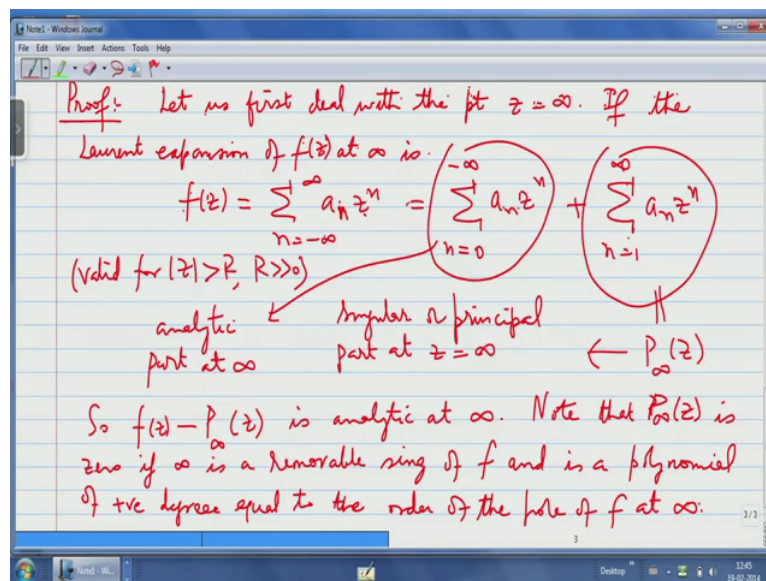 Note1 - Windows Journal
File Edit View Insert Actions Tools Help
Proof:- Let us first deal with the pt z = ∞. If the
Laurent expansion of f(z) at ∞ is.
f(z) = ∑_{n=-∞}^{∞} a_n z^n = ∑_{n=0}^{-∞} a_n z^n + ∑_{n=1}^{∞} a_n z^n
(valid for |z| > R, R >> 0)
analytic part at ∞
singular or principal part at z = ∞ ← P_∞(z)
So f(z) - P_∞(z) is analytic at ∞. Note that P_∞(z) is
zero if ∞ is a removable sing of f and is a polynomial
of +ve degree equal to the order of the pole of f at ∞.
3/3
3
Note1 - Wi...
Desktop
12:45
19-02-2014